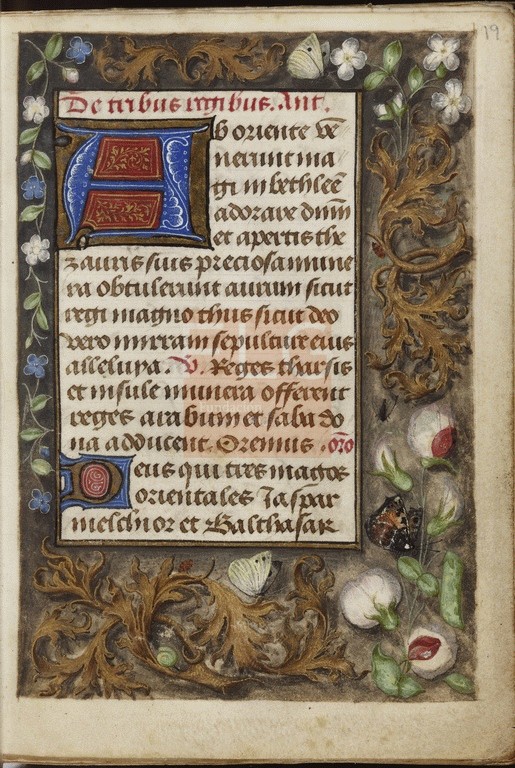 19
De tribus regibus. Ant.
Ab oriente ve͞
nerunt ma
gi in bethlee͞
adorare dn͞m
et apertis the
zauris suis preciosa mune
ra obtulerunt aurum sicut
regi magno thus sicut deo
vero mirram sepulture eius
alleluya. V. Reges tharsis
et insule munera offerent
reges arabum et saba do
na adducent. Oremus. oro͞
Deus qui tres magos
orientales Jaspar
melchior et Balthasar